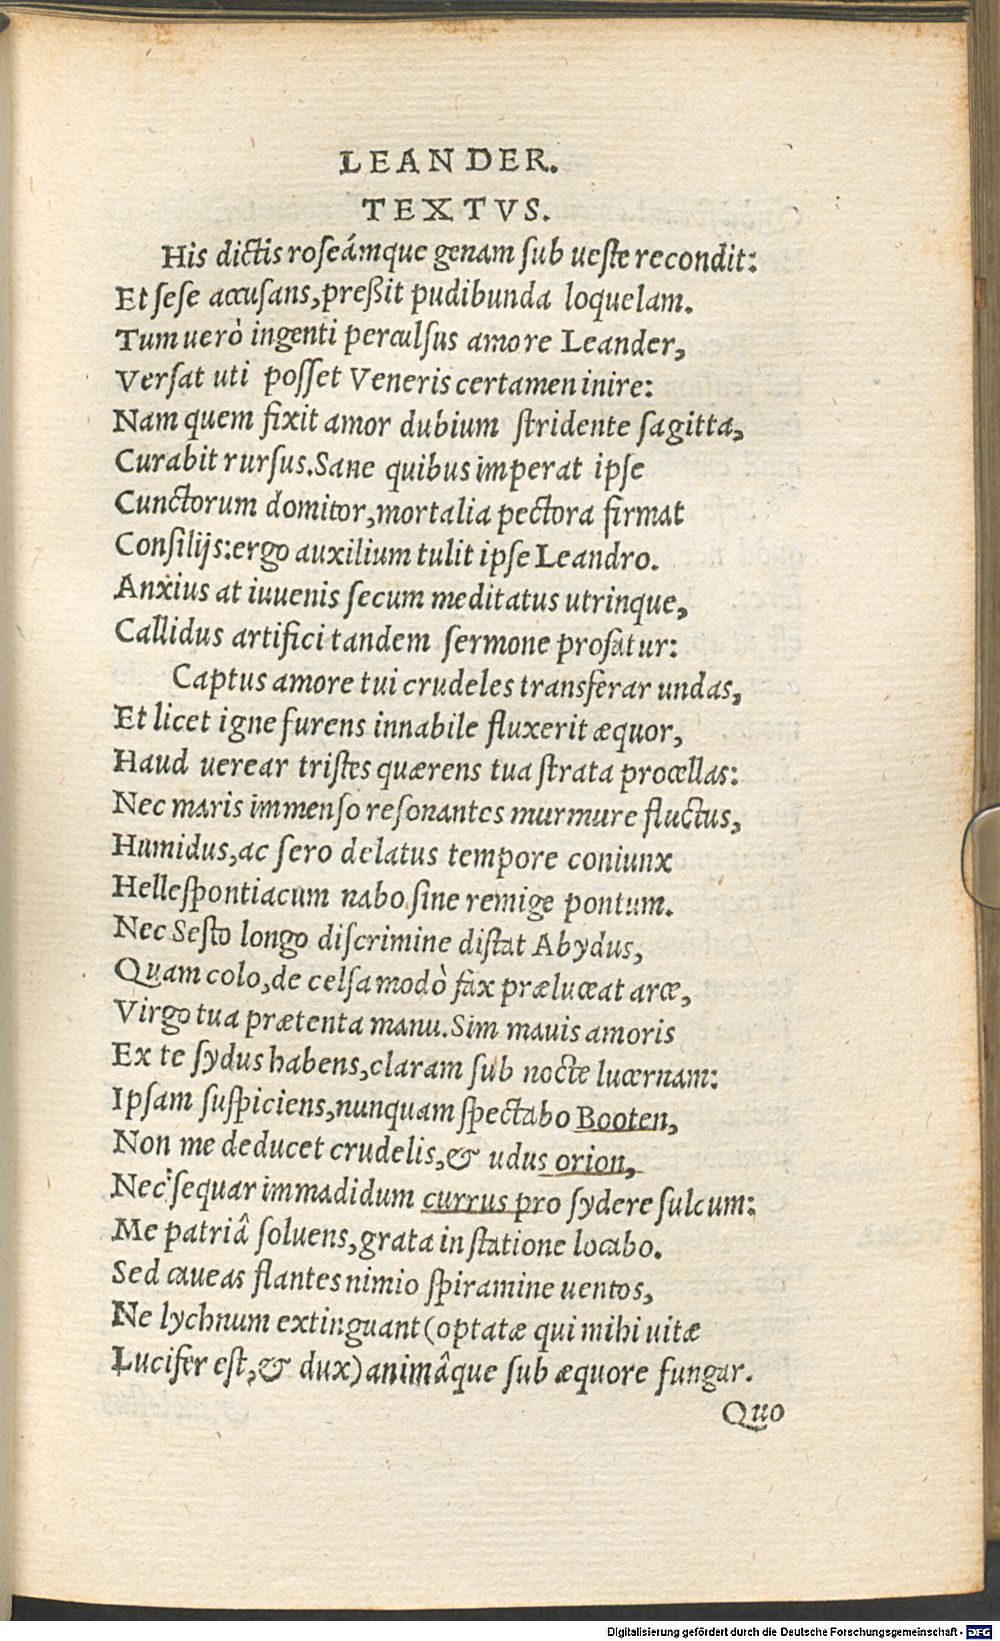 LEANDER.
TEXTVS.
His dictis roseámque genam sub ueste recondit:
Et sese accusans, preßit pudibunda loquelam.
Tum uerò ingenti perculsus amore Leander,
Versat uti posset Veneris certamen inire:
Nam quem fixit amor dubium stridente sagitta,
Curabit rursus. Sane quibus imperat ipse
Cunctorum domitor, mortalia pectora firmat
Consilijs: ergo auxilium tulit ipse Leandro.
Anxius at iuuenis secum meditatus utrinque,
Callidus artifici tandem sermone profatur:
Captus amore tui crudeles transferar undas,
Et licet igne furens innabile fluxerit æquor,
Haud uerear tristes quærens tua strata procellas:
Nec maris immenso resonantes murmure fluctus,
Humidus, ac sero delatus tempore coniunx
Hellespontiacum nabo sine remige pontum.
Nec Sesto longo discrimine distat Abydus,
Quam colo, de celsa modò fax præluceat arce,
Virgo tua prætenta manu. Sim mauis amoris
Ex te sydus habens, claram sub nocte lucernam:
Ipsam suspiciens, nunquam spectabo Booten,
Non me deducet crudelis, & udus orion,
Nec sequar immadidum currus pro sydere sulcum:
Me patriâ soluens, grata in statione locabo.
Sed caueas flantes nimio spiramine uentos,
Ne lychnum extinguant (optatæ qui mihi uitæ
Lucifer est, & dux) animâque sub æquore fungar.
Quo
Digitalisierung gefördert durch die Deutsche Forschungsgemeinschaft - DFG